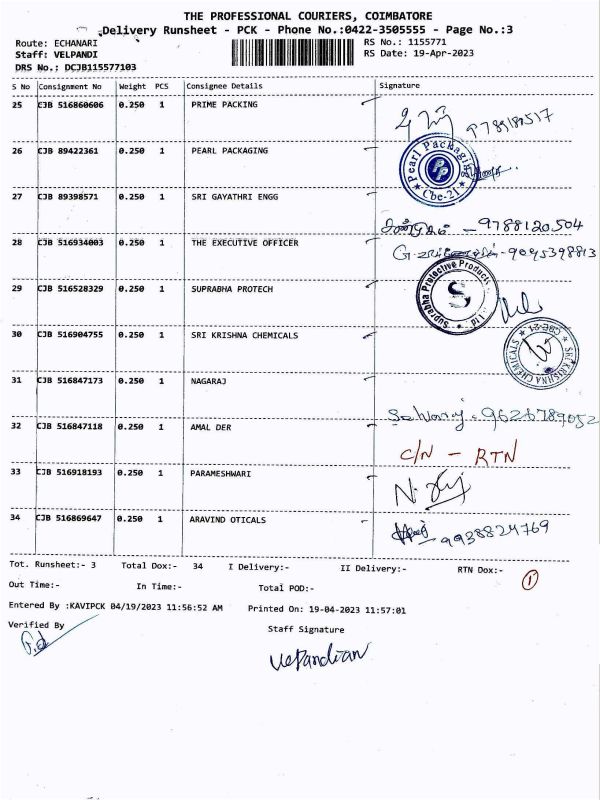 THE PROFESSIONAL COURIERS, COIMBATORE
Delivery Runsheet - PCK - Phone No.:0422-3505555 - Page No.:3
Route: ECHANARI
RS No.: 1155771
Staff: VELPANDI
RS Date: 19-Apr-2023
DRS No.; DCJB115577103
S No Consignment No Weight PCS Consignee Details Signature
25 CJB 516860606 0.250 1 PRIME PACKING
26 CJB 89422361 0.250 1 PEARL PACKAGING
Pearl Packaging
Cbe-21
27 CJB 89398571 0.250 1 SRI GAYATHRI ENGG
9788120504
28 CJB 516934003 0.250 1 THE EXECUTIVE OFFICER
9095398813
29 CJB 516528329 0.250 1 SUPRABHA PROTECH
Suprabha Protective Products
Ltd
S
30 CJB 516904755 0.250 1 SRI KRISHNA CHEMICALS
SRI KRISHNA CHEMICALS
CBE-21
31 CJB 516847173 0.250 1 NAGARAJ
9626789052
32 CJB 516847118 0.250 1 AMAL DER
C/N - RTN
33 CJB 516918193 0.250 1 PARAMESHWARI
34 CJB 516869647 0.250 1 ARAVIND OTICALS
9938824769
Tot. Runsheet:- 3 Total Dox:- 34 I Delivery:- II Delivery:- RTN Dox:- 1
Out Time:- In Time:- Total POD:-
Entered By :KAVIPCK 04/19/2023 11:56:52 AM Printed On: 19-04-2023 11:57:01
Verified By
Staff Signature